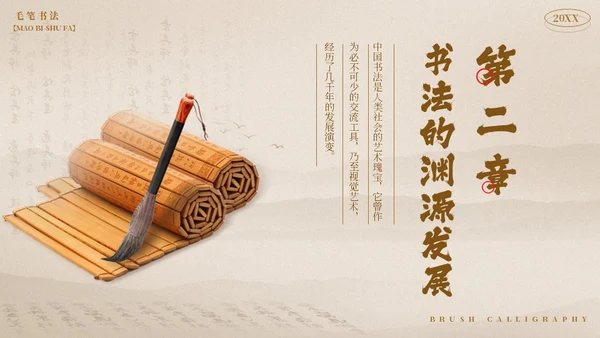 毛笔书法
【MAO BI SHU FA】
20XX
第二章
书法的渊源发展
中国书法是人类社会的艺术瑰宝，它曾作
为必不可少的交流工具，乃至视觉艺术，
经历了几千年的发展演变。
BRUSH CALLIGRAPHY